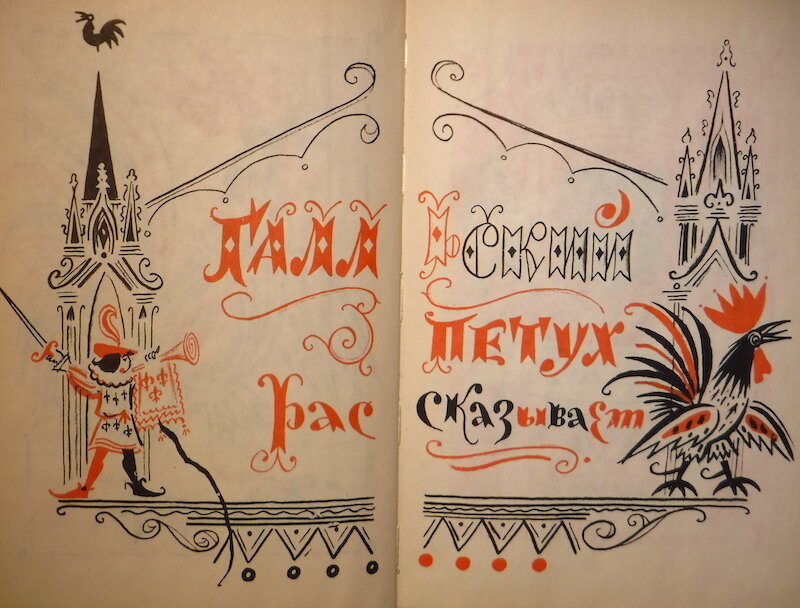 Галльский
петух
рассказывает